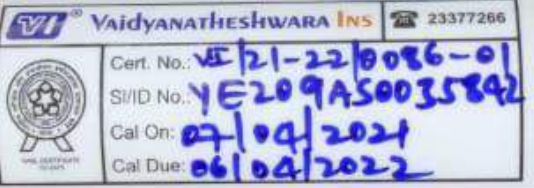 VI ® VAIDYANATHESHWARA INS ☎ 23377266
Cert. No.: VI/21-22/0086-01
SI/ID No.: YE209AS0035842
Cal On: 07/04/2021
Cal Due: 06/04/2022